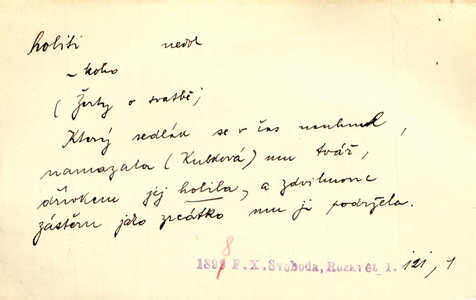 holiti nedok
~ koho
(Žerty o svatbě;
Který sedlák se v čas neuhnul,
namazala (Kulková) mu tvář,
dřívkem jej holila, a zdvihnouc
zástěru jako zrcátko mu ji podržela.
1898 F.X.Svoboda, Rozkvět 1. 121, 1